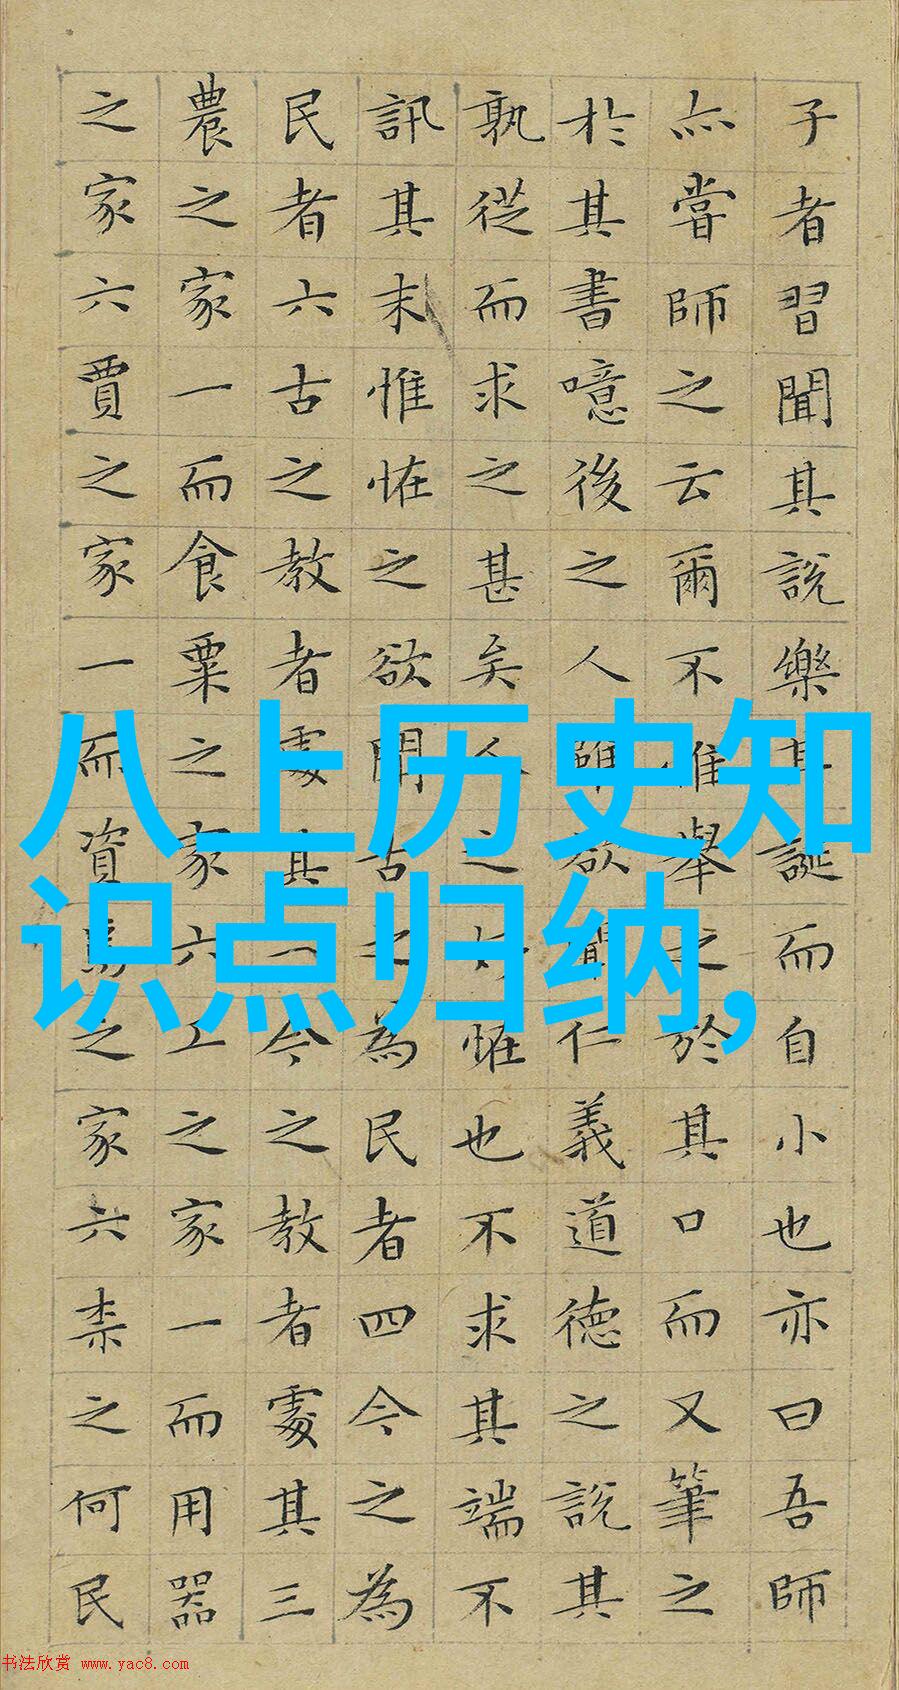 八上历史知
识点归纳,
子者習聞其說樂其誕而自小也亦曰吾師
亦嘗師之云爾不惟舉之於其口而又筆之
於其書噫後之人雖欲聞仁義道德之說其
孰從而求之甚矣人之好恠也不求其端不
訊其末惟恠之欲聞古之為民者四今之為
民者六古之教者處其一今之教者處其三
農之家一而食粟之家六工之家一而用器
之家六賈之家一而資焉之家六柰之何民
书法欣赏 www.yac8.com